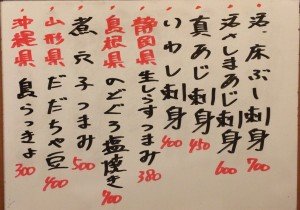 活、床ぶし刺身 700
活さしまあじ刺身 600
真あじ刺身 450
いわし刺身 400
静岡県 生しらすつまみ 380
島根県 のどぐろ塩焼き 700
煮穴子つまみ 500
山形県 だだちゃ豆 400
沖縄県 島らっきょ 300